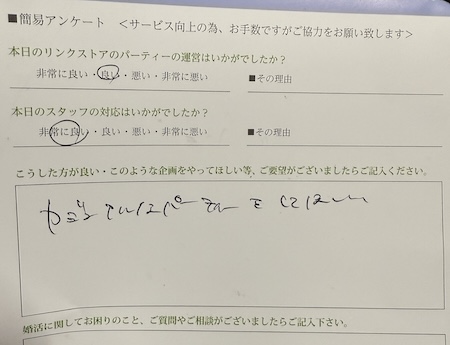 ■簡易アンケート <サービス向上の為、お手数ですがご協力をお願い致します>
本日のリンクストアのパーティーの運営はいかがでしたか?
非常に良い・良い・悪い・非常に悪い ■その理由
本日のスタッフの対応はいかがでしたか?
非常に良い・良い・悪い・非常に悪い ■その理由
こうした方が良い・このような企画をやってほしい等、ご要望がございましたらご記入ください。
してほしい
婚活に関してお困りのこと、ご質問やご相談がございましたらご記入下さい。